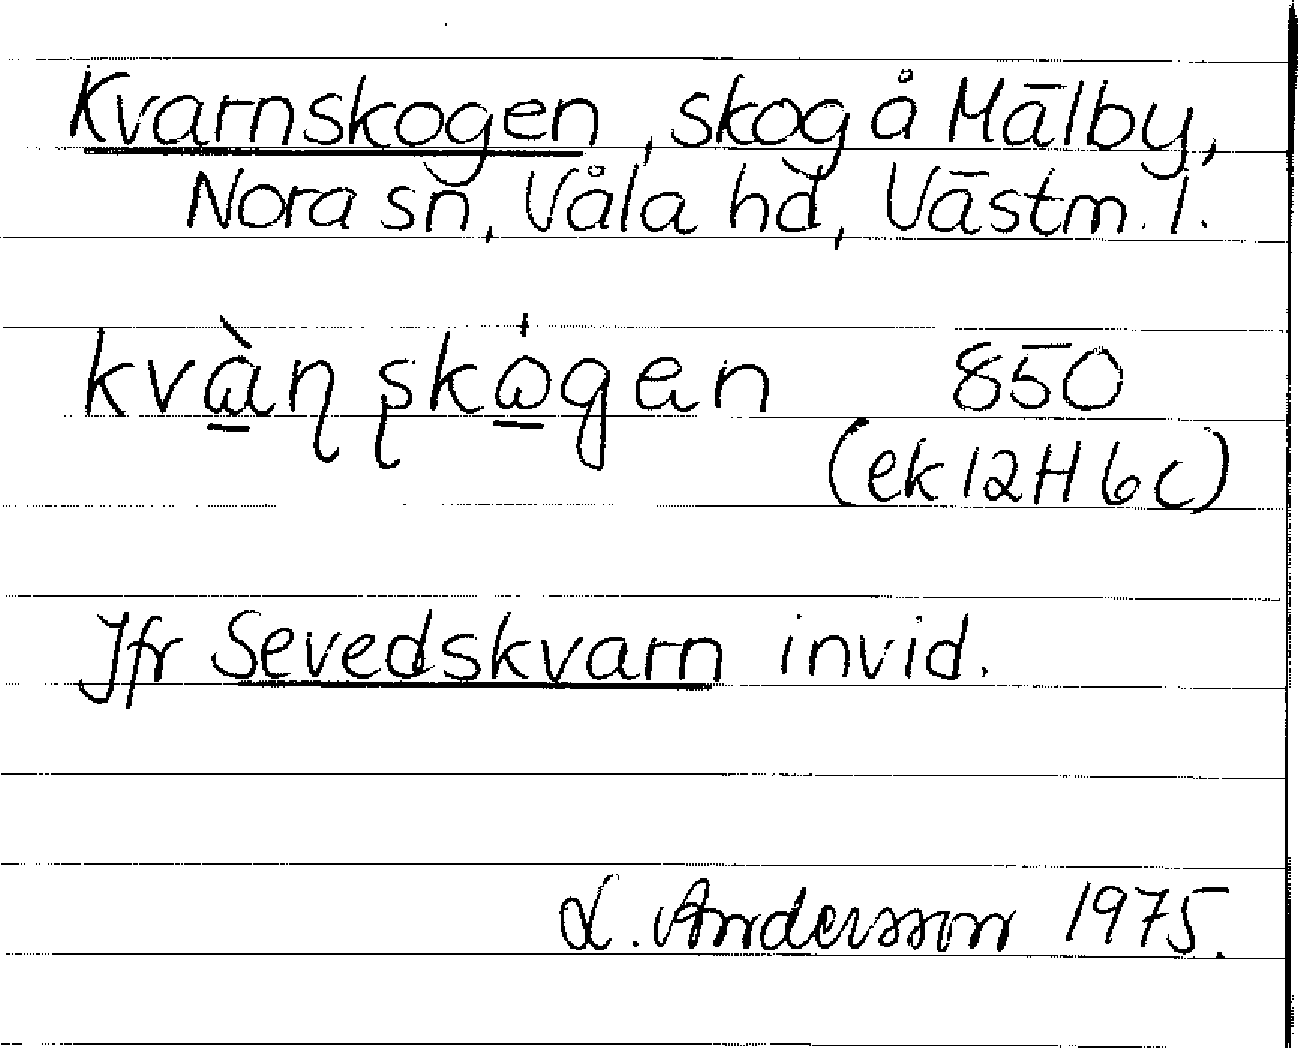 Kvarnskogen, skog å Mälby,
Nora sn, Våla hd, Västm. l.
kvàɳ ʂkógen 850
(ek 12H 6c)
Jfr Sevedskvarn invid.
L. Andersson 1975.